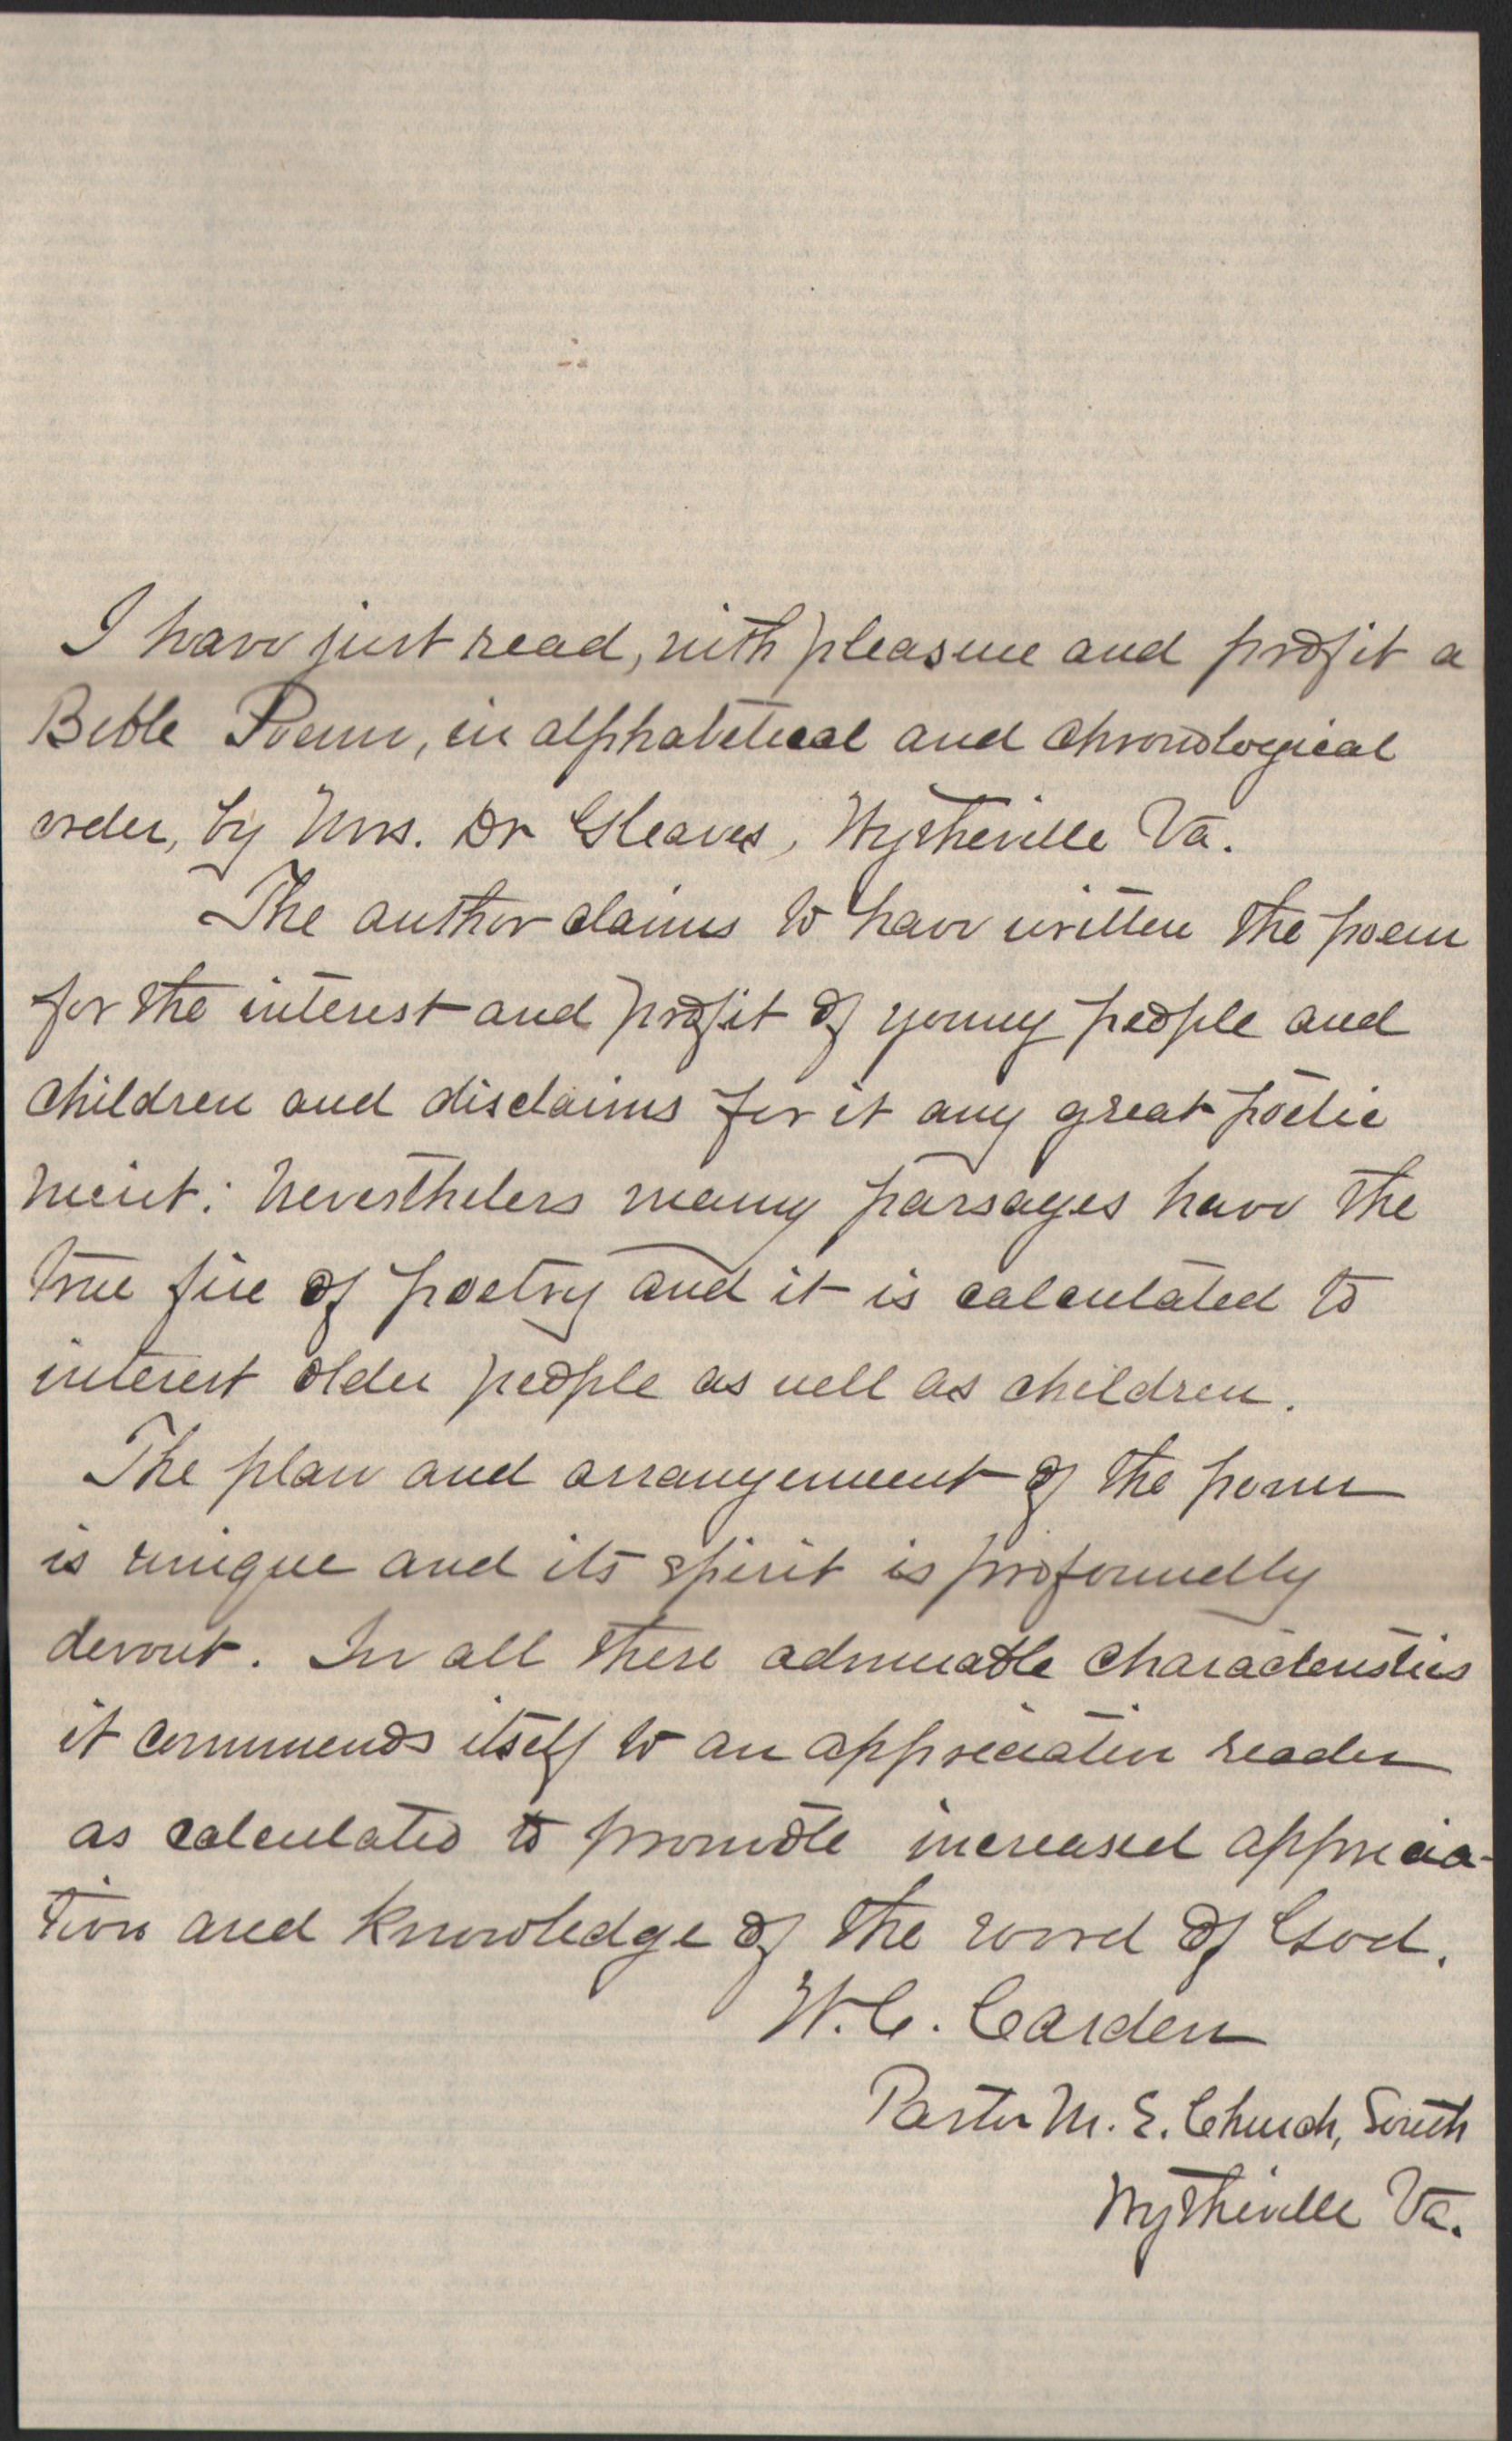 I have just read, with pleasure and profit a
Bible Poem, in alphabetical and chronological
order, by Mrs. Dr Gleaves, Wytheville Va.
The author claims to have written the poem
for the interest and profit of young people and
children and disclaims for it any great poetic
merit: nevertheless many passages have the
true fire of poetry and it is calculated to
interest older people as well as children.
The plan and arrangement of the poem
is unique and its spirit is profoundly
devout. In all these admirable characteristics
it commends itself to an appreciative reader
as calculated to promote increased apprecia-
tion and knowledge of the word of God.
W. C. Carden
Pastor M. E. Church, South
Wytheville Va.